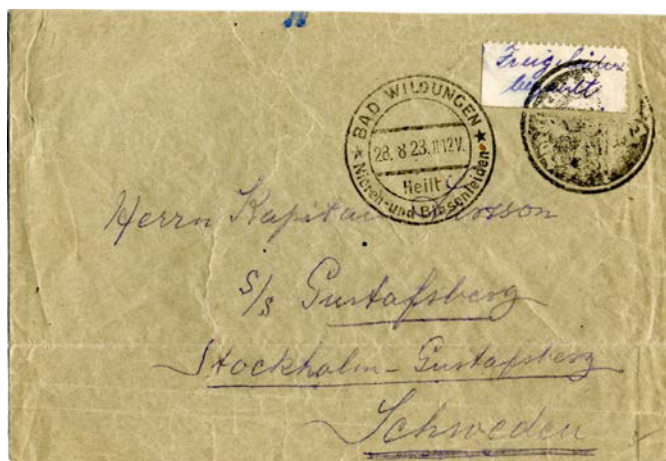 bezahlt
BAD WILDUNGEN
28. 8 23. 11-12V.
Heilt
Nieren- und Blasenleiden
Herrn Kapitain Larsson
S/s Gustafsberg
Stockholm - Gustafsberg
Schweden